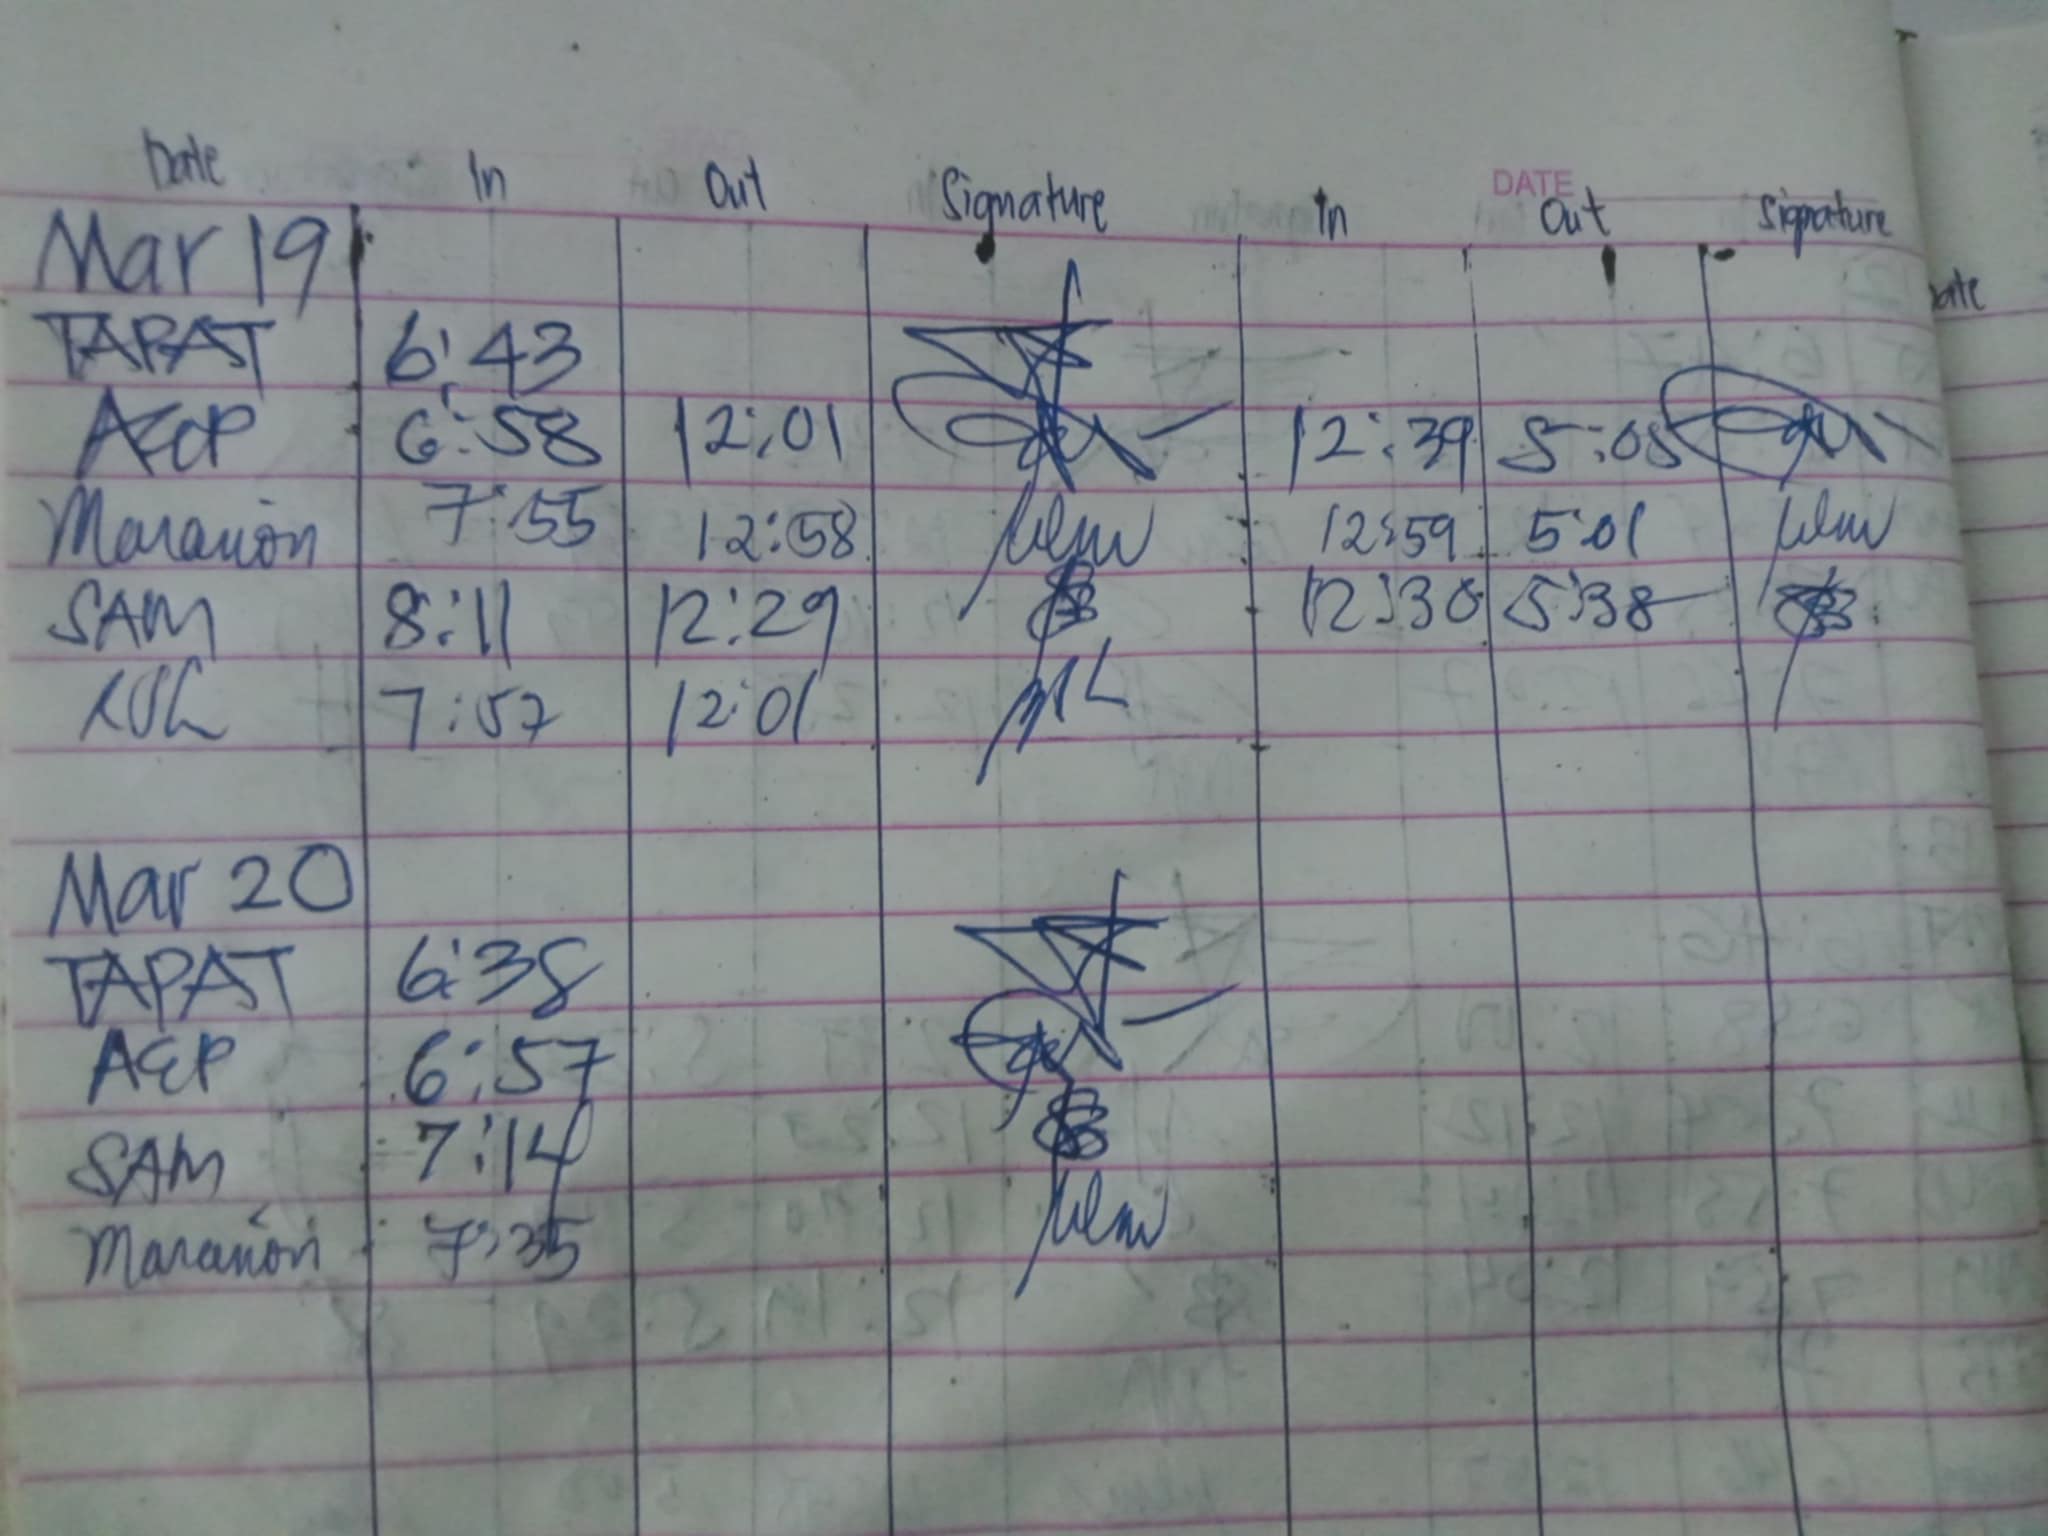 Date In Out Signature In Out Signature
DATE
Mar 19
TAPAT 6:43
AECP 6:58 12:01 12:39 5:05
Marañón 7:55 12:58 12:59 5:01
SAM 8:11 12:29 12:30 5:38
7:57 12:01
Mar 20
TAPAT 6:38
AEP 6:57
SAM 7:14
Marañón 7:35